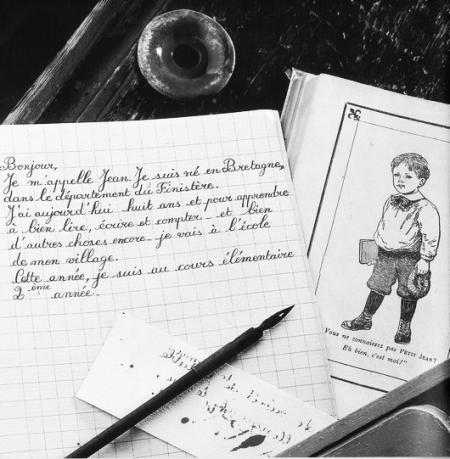 Bonjour,
Je m'appelle Jean. Je suis né en Bretagne,
dans le département du Finistère.
J'ai aujourd'hui huit ans et pour apprendre
à bien lire, écrire et compter - et bien
d'autres choses encore - je vais à l'école
de mon village.
Cette année, je suis au cours élémentaire
2ème année.
Vous ne connaissez pas PETIT JEAN?
Eh bien, c'est moi!"